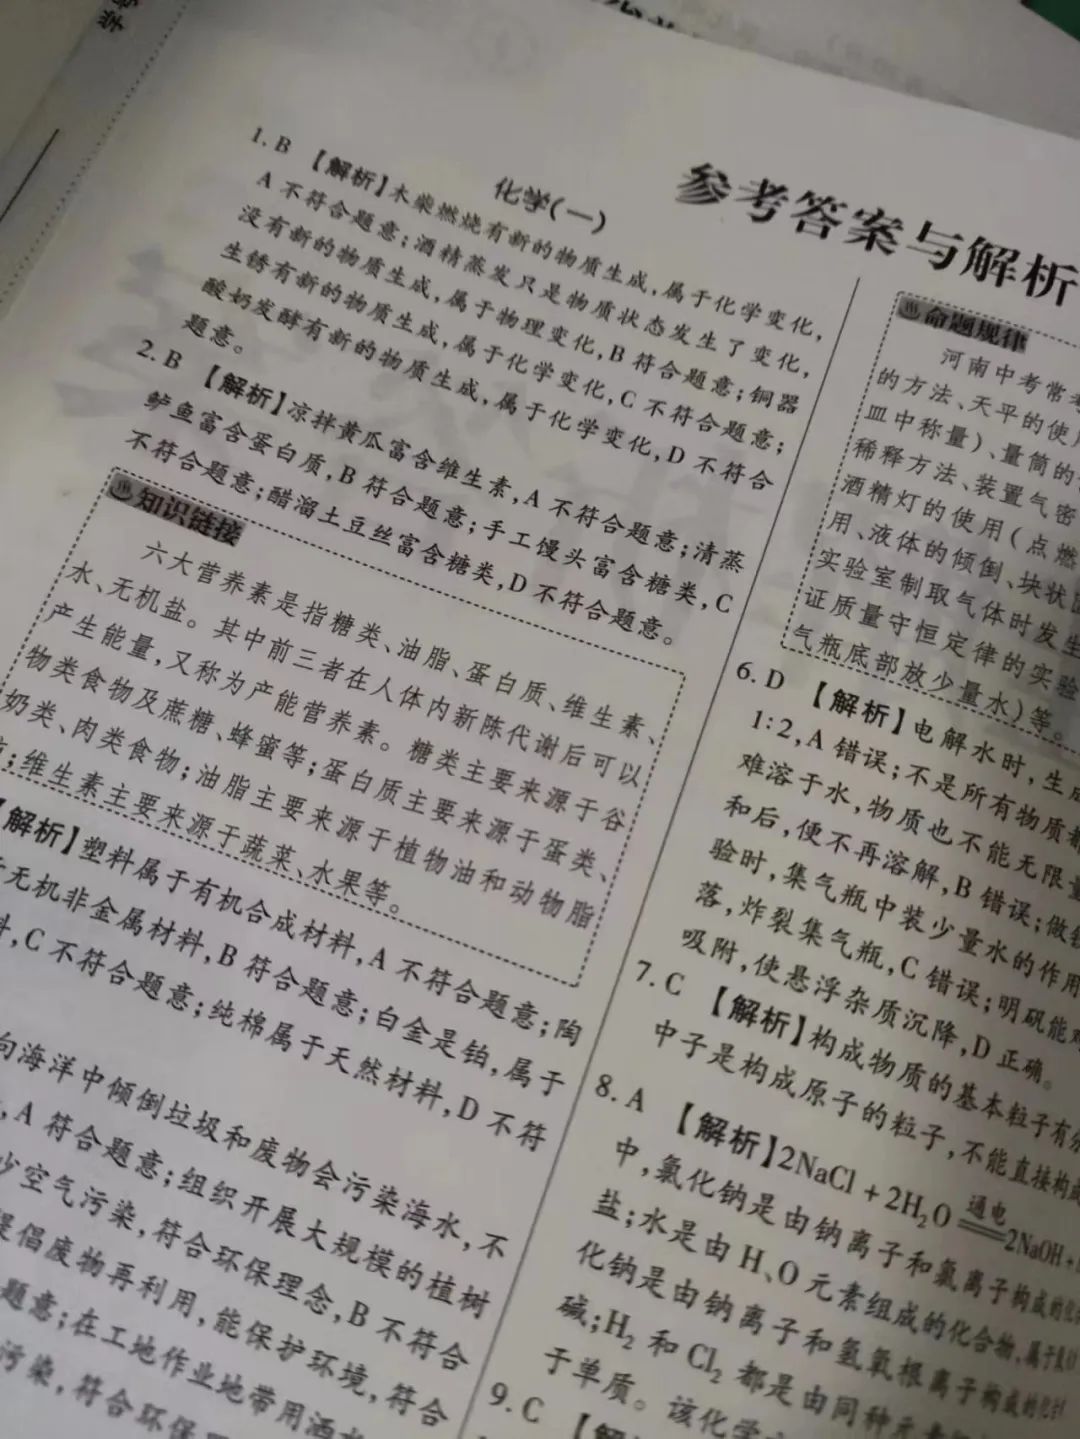 参考答案与解析
化学(一)
1. B 【解析】木柴燃烧有新的物质生成,属于化学变化,
A 不符合题意;酒精蒸发只是物质状态发生了变化,
没有新的物质生成,属于物理变化,B 符合题意;铜器
生锈有新的物质生成,属于化学变化,C 不符合题意;
酸奶发酵有新的物质生成,属于化学变化,D 不符合
题意。
2. B 【解析】凉拌黄瓜富含维生素,A 不符合题意;清蒸
鲈鱼富含蛋白质,B 符合题意;手工馒头富含糖类,C
不符合题意;醋溜土豆丝富含糖类,D 不符合题意。
知识链接
六大营养素是指糖类、油脂、蛋白质、维生素、
水、无机盐。其中前三者在人体内新陈代谢后可以
产生能量,又称为产能营养素。糖类主要来源于谷
物类食物及蔗糖、蜂蜜等;蛋白质主要来源于蛋类、
奶类、肉类食物;油脂主要来源于植物油和动物脂
;维生素主要来源于蔬菜、水果等。
【解析】塑料属于有机合成材料,A 不符合题意;陶
无机非金属材料,B 符合题意;白金是铂,属于
,C 不符合题意;纯棉属于天然材料,D 不符
向海洋中倾倒垃圾和废物会污染海水,不
,A 符合题意;组织开展大规模的植树
少空气污染,符合环保理念,B 不符合
提倡废物再利用,能保护环境,符合
题意;在工地作业地带用洒
污染,符合环保
命题规律
河南中考常考
的方法、天平的使
皿中称量)、量筒的
稀释方法、装置气密
酒精灯的使用(点燃
用、液体的倾倒、块状
实验室制取气体时发生
证质量守恒定律的实验
气瓶底部放少量水)等。
6. D 【解析】电解水时,生成
1:2,A 错误;不是所有物质都
难溶于水,物质也不能无限量
和后,便不再溶解,B 错误;做
验时,集气瓶中装少量水的作用
落,炸裂集气瓶,C 错误;明矾能
吸附,使悬浮杂质沉降,D 正确。
7. C 【解析】构成物质的基本粒子有分
中子是构成原子的粒子,不能直接构成
8. A 【解析】2NaCl + 2H₂O 通电 2NaOH +
中,氯化钠是由钠离子和氯离子构成的化
盐;水是由 H、O 元素组成的化合物,属于
化钠是由钠离子和氢氧根离子构成的化
碱;H₂ 和 Cl₂ 都是由同种元
于单质。该化学
9. C 【解